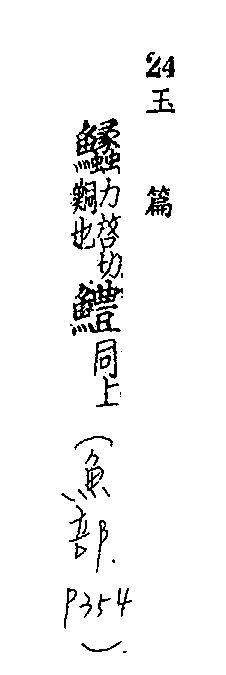 24
玉篇
鱺力啓切鯛也鱧同上
(魚部.
P354)